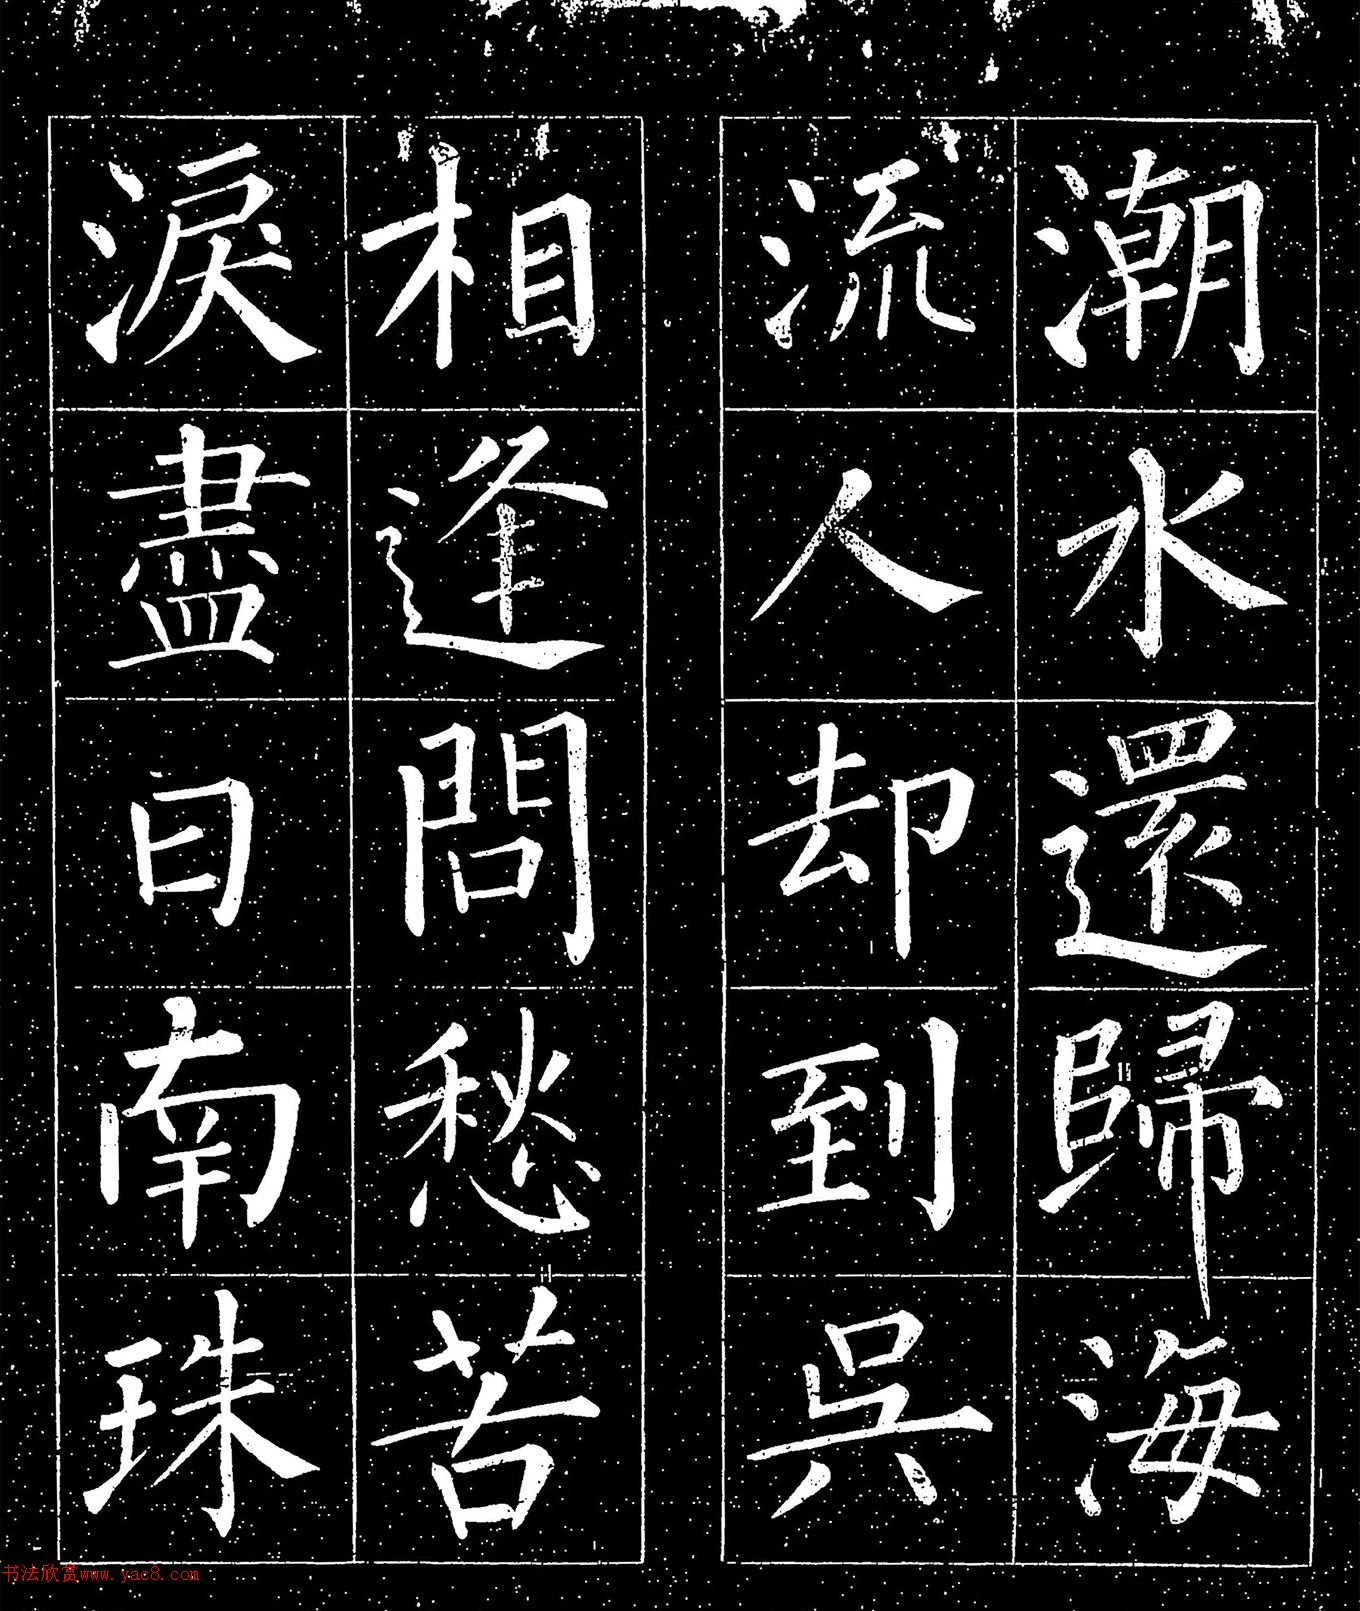 潮水還歸海
流人却到吳
相逢問愁苦
淚盡日南珠
书法欣赏www.yac8.com